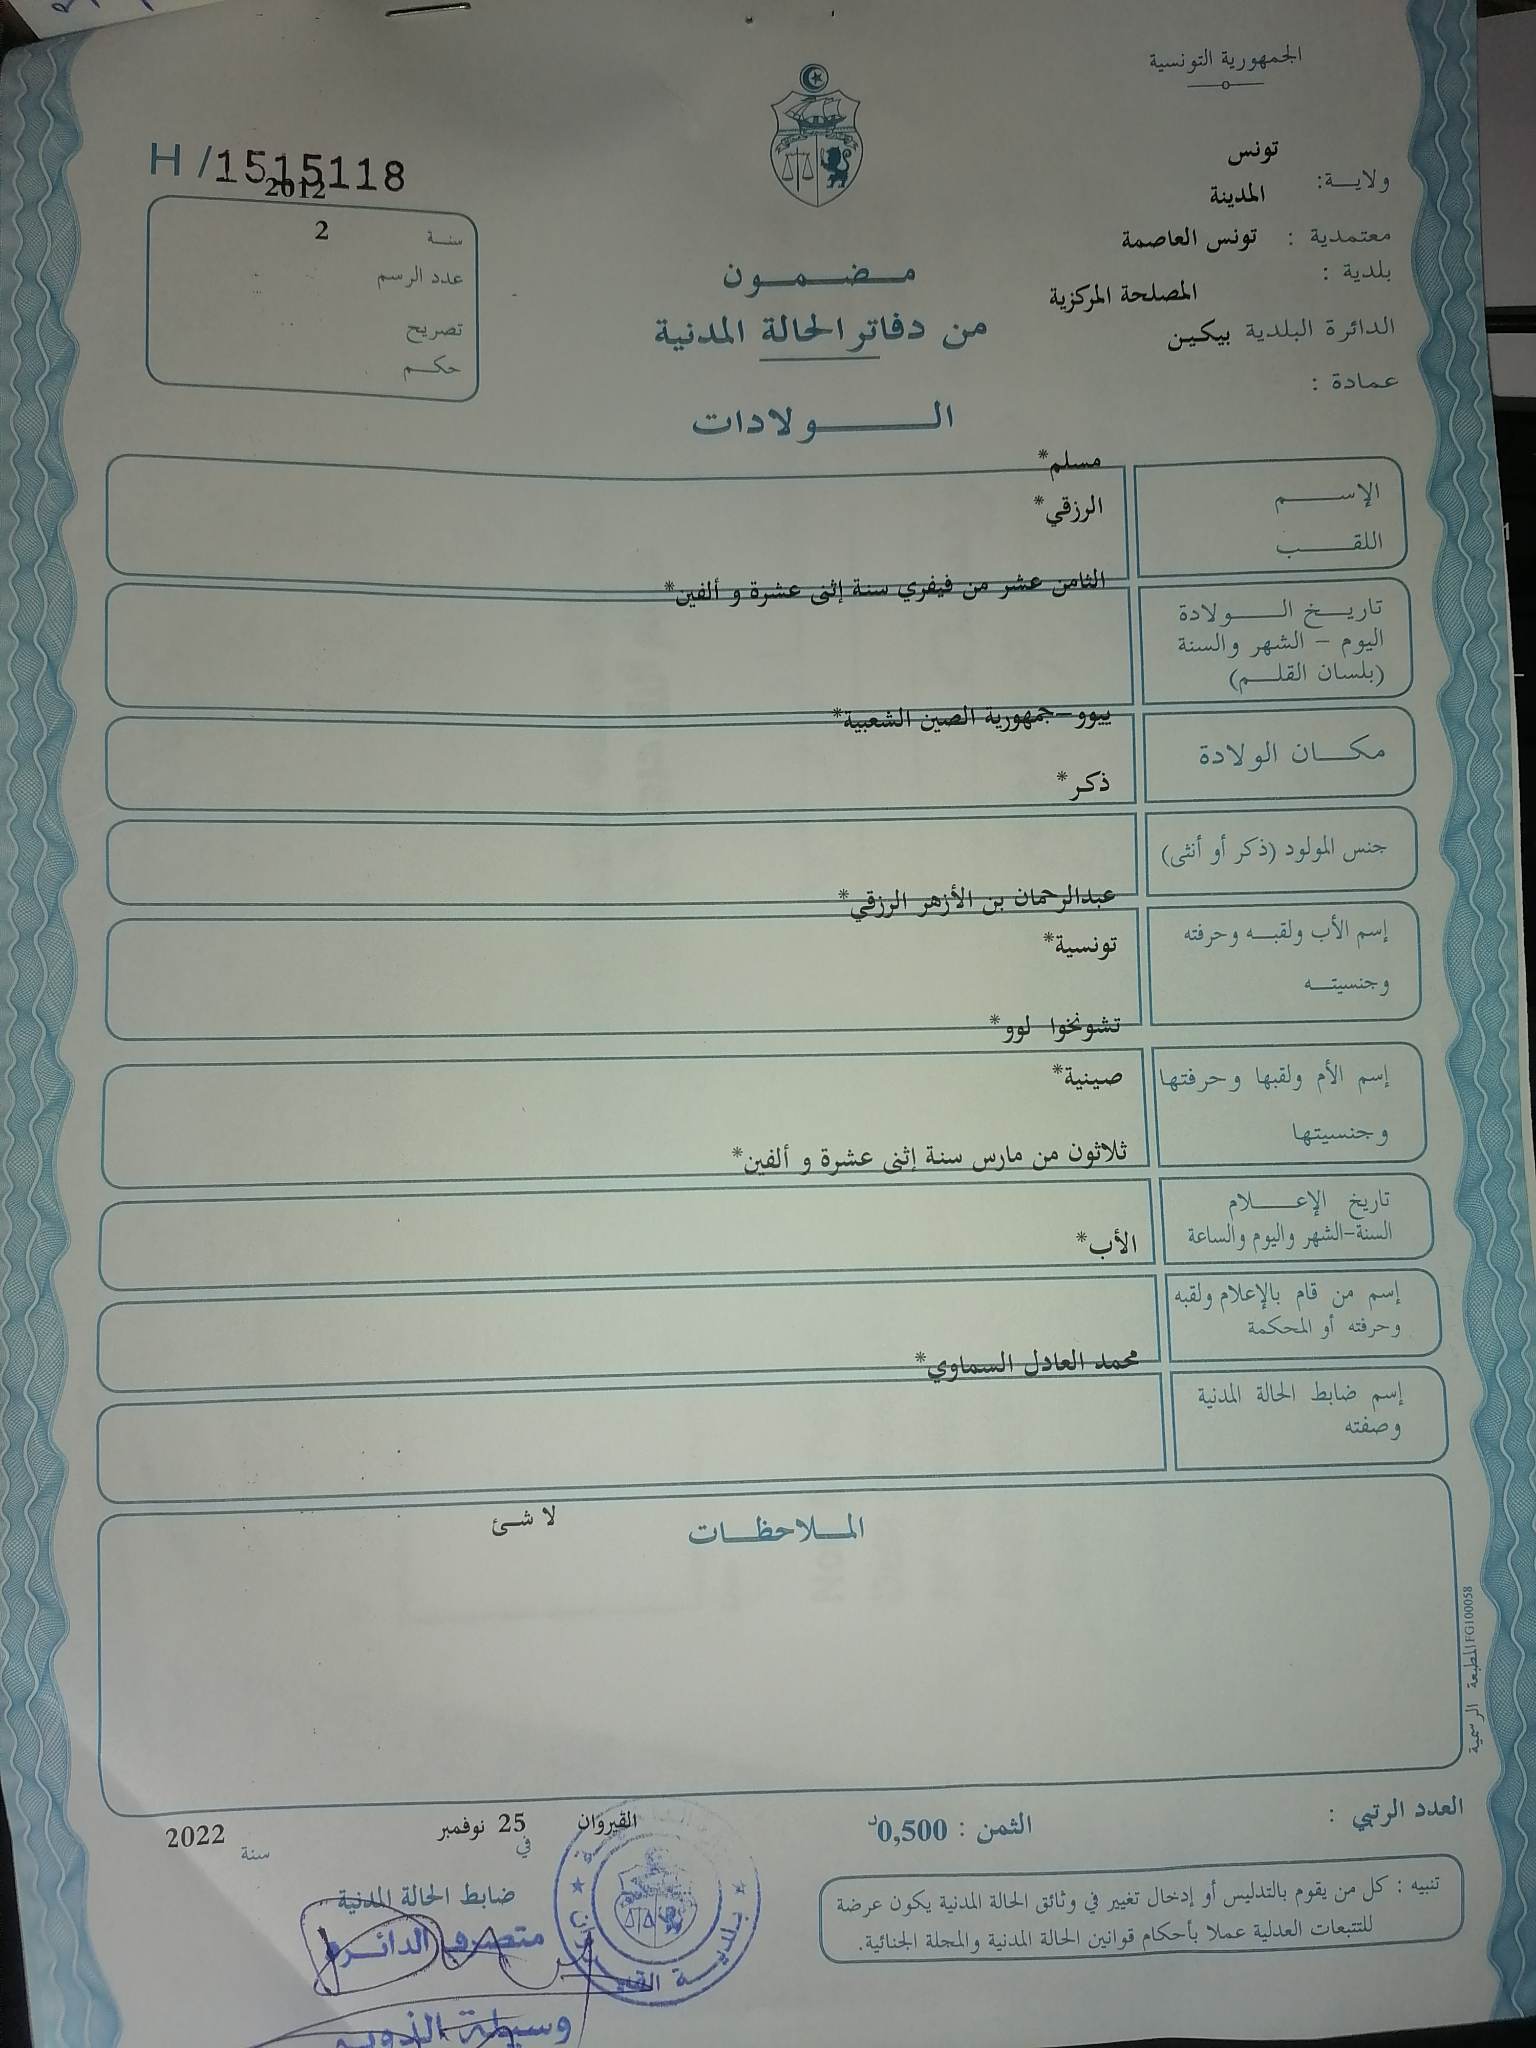 الجمهورية التونسية
H /1515118
ولايـــة: تونس
معتمدية : المدينة
بلدية : تونس العاصمة
الدائرة البلدية المصلحة المركزية
بيكين
عمادة :
2012
سنـة 2
عدد الرسم
تصريح
حكـم
مـــضـــمـــون
من دفاتر الحالة المدنية
الـــــولادات
الإســــم مسلم*
اللقـــب الرزقي*
تاريـــخ الـــــولادة
اليوم - الشهر والسنة
(بلسان القلــم)
الثامن عشر من فيفري سنة إثنى عشرة و ألفين*
مكـــان الولادة
ييوو-جمهورية الصين الشعبية*
جنس المولود (ذكر أو أنثى)
ذكر*
إسم الأب ولقبــه وحرفته
وجنسيتــه
عبدالرحمان بن الأزهر الرزقي*
تونسية*
إسم الأم ولقبها وحرفتها
وجنسيتها
تشونخوا لوو*
صينية*
تاريخ الإعــــلام
السنة-الشهر واليوم والساعة
ثلاثون من مارس سنة إثنى عشرة و ألفين*
إسم من قام بالإعلام ولقبه
وحرفته أو المحكمة
الأب*
إسم ضابط الحالة المدنية
وصفته
محمد العادل السماوي*
الملاحظــات
لا شئ
المطبعة الرسمية FG100058
العدد الرتبي :
الثمن : 0,500د
القيروان في 25 نوفمبر سنة 2022
ضابط الحالة المدنية
متصرف الدائرة
وسيلة
بلدية القيروان
تنبيه : كل من يقوم بالتدليس أو إدخال تغيير في وثائق الحالة المدنية يكون عرضة
للتتبعات العدلية عملا بأحكام قوانين الحالة المدنية والمجلة الجنائية.